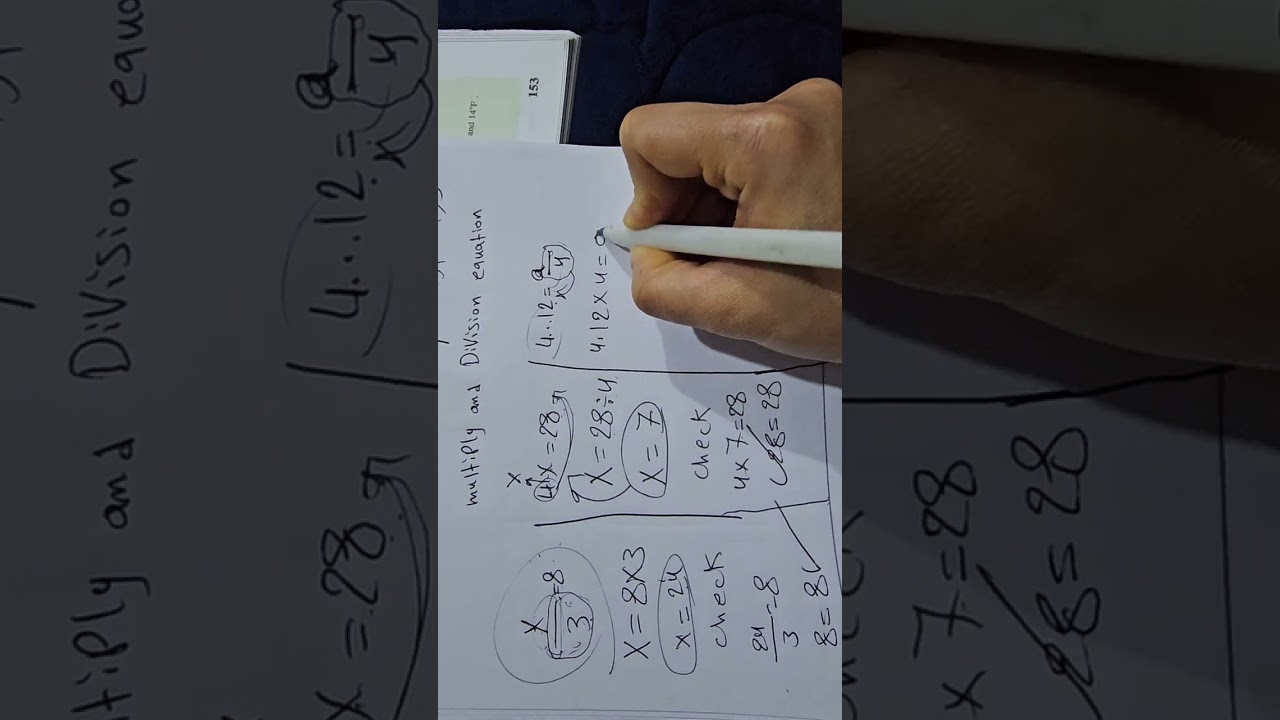 153
and 14°F.
multiply and Division equation
X/3 = 8
X = 8X3
x = 24
check
24/3 = 8
8 = 8 ✓
x
4X = 28
X = 28÷4
X = 7
check
4x7=28
28 = 28
4..12 = a/4
4.12 x 4 = a